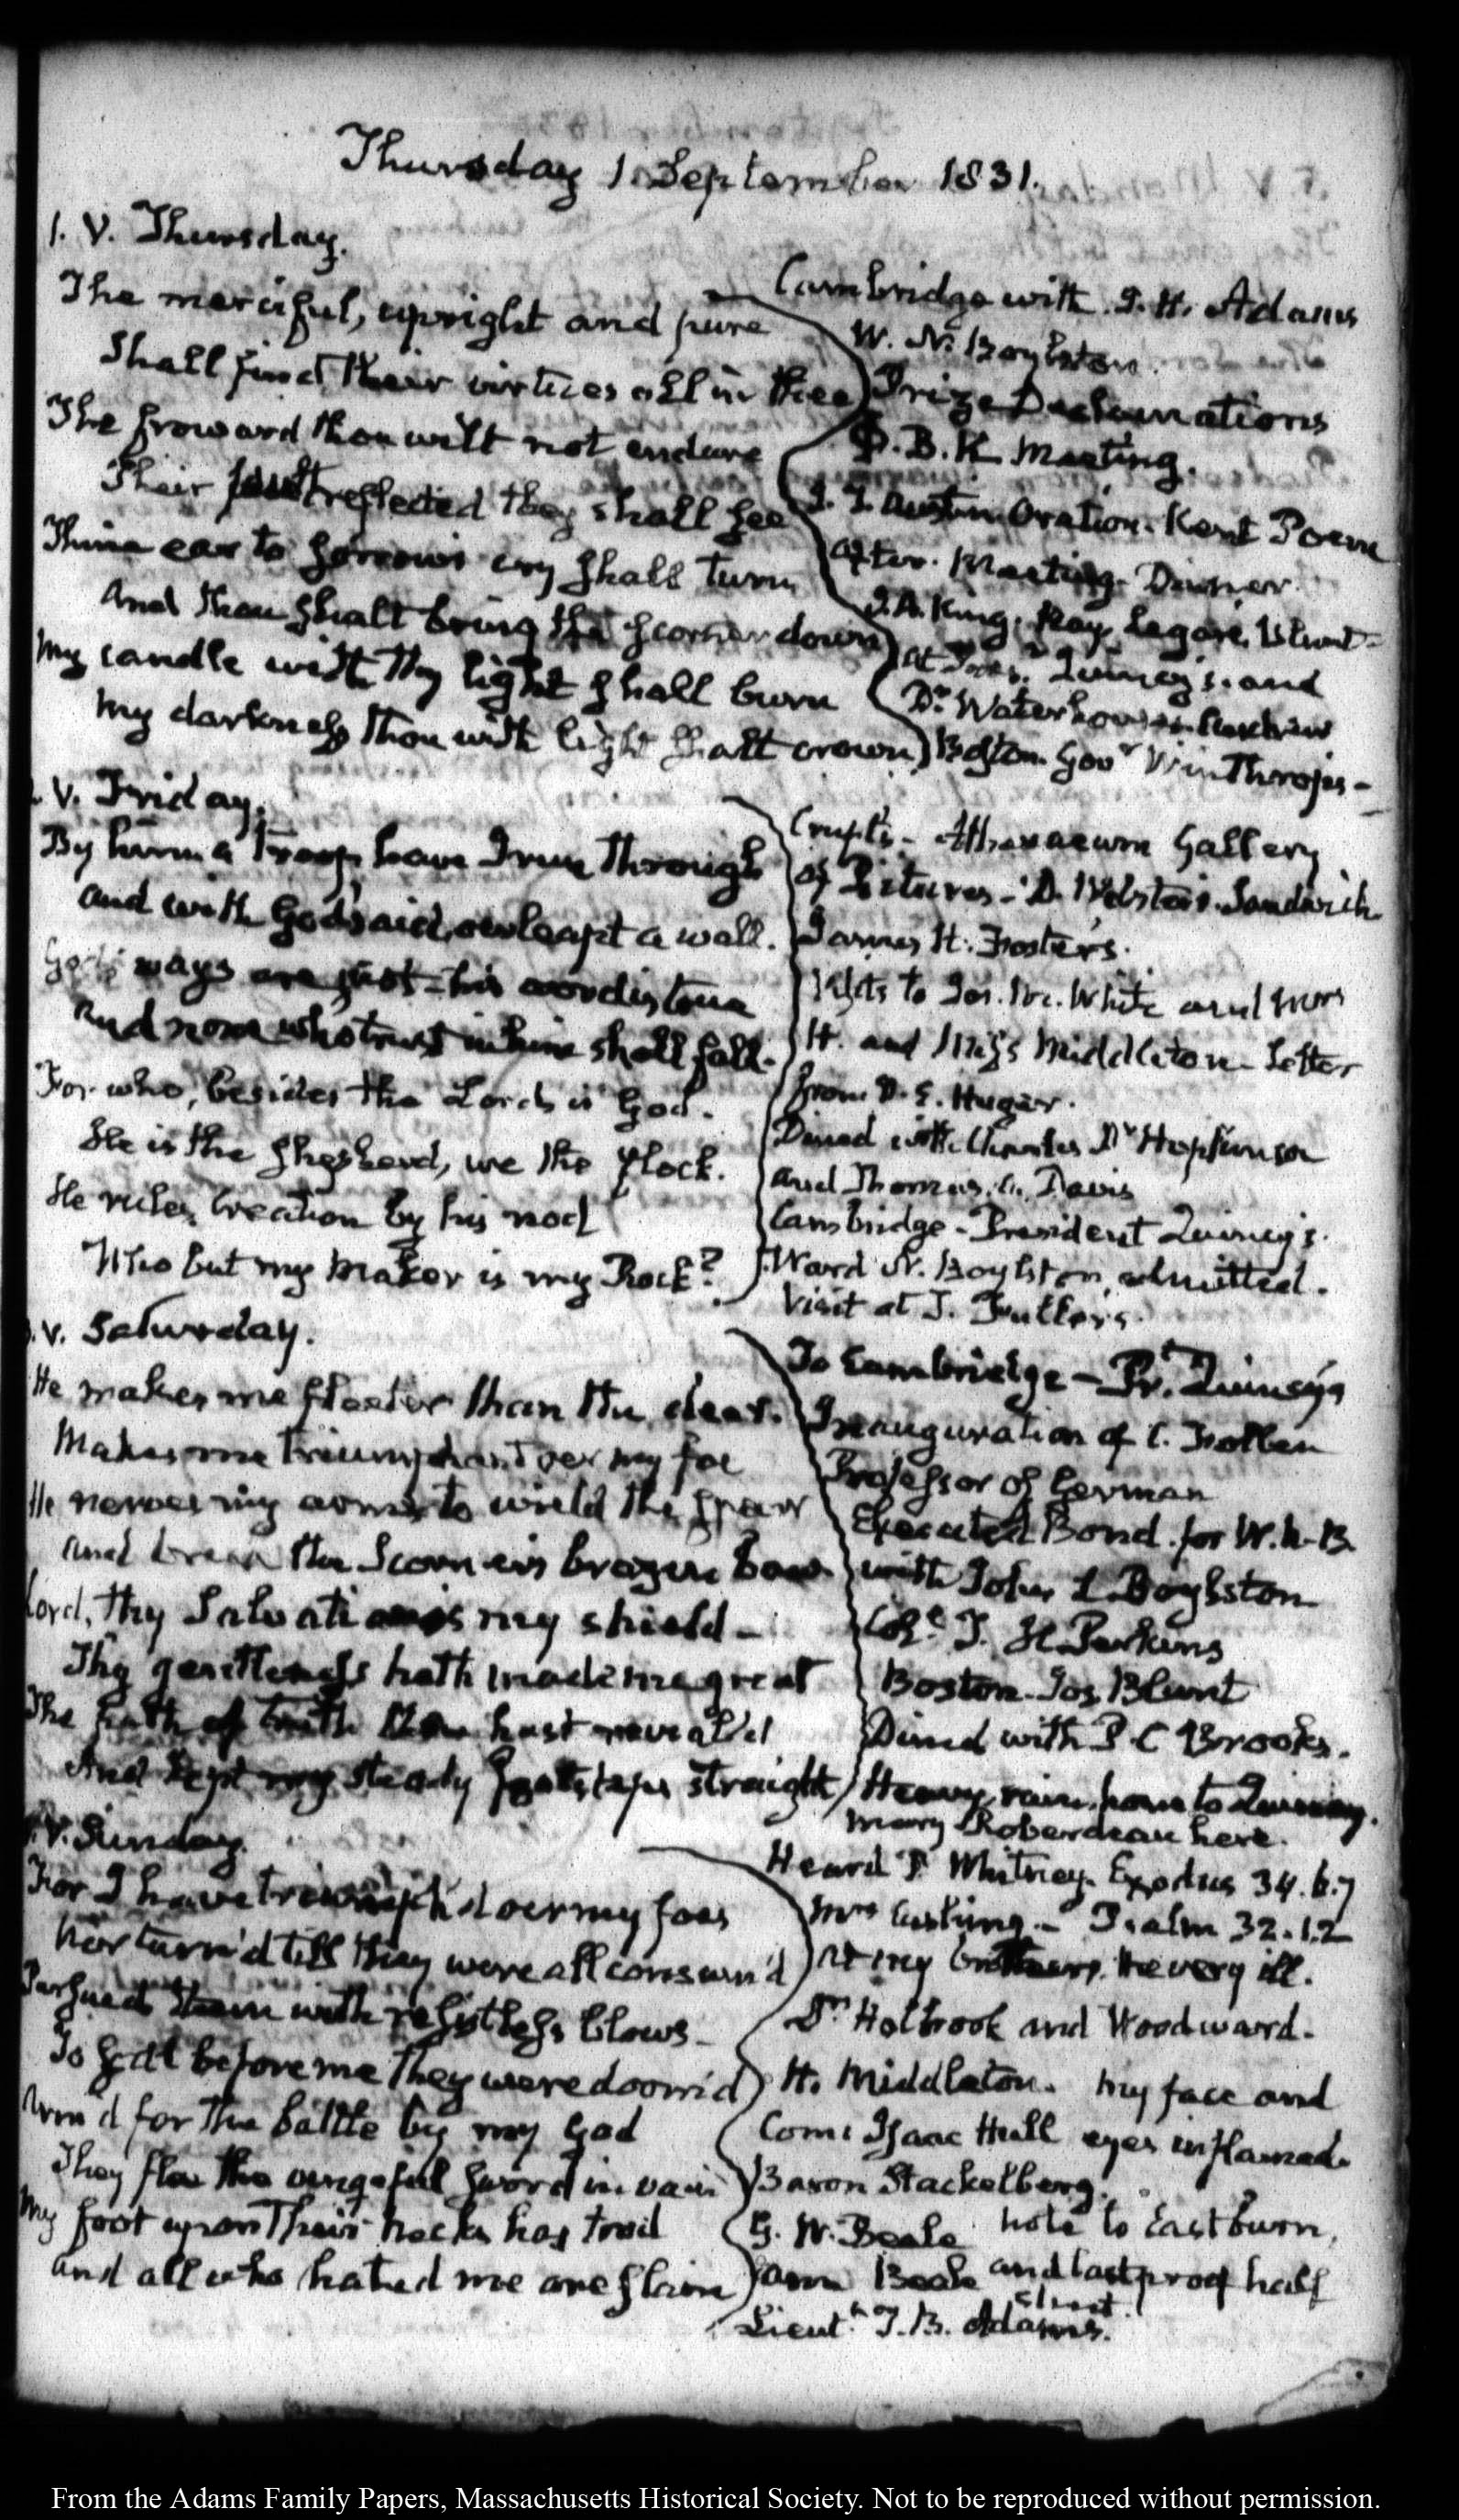 Thursday 1. September 1831.
1. V. Thursday.
The merciful, upright and pure
Shall find their virtues all in thee
The froward thou wilt not endure
Their fault reflected they shall see
Thine ear to sorrow's cry shall turn
And thou shalt bring the scorner down
My candle with thy light shall burn
My darkness thou with light shalt crown
Cambridge with I. H. Adams
W. N. Boylston.
Prize Declamations
P. B. K. Meeting.
I. T. Austin Oration. Kent Poem
After. Meeting. Dinner.
J. A. King, Kay, Legaré, Blunt-
at Quincy's. and
Dr. Waterhouse's.
Boston. Govr. Winthrop's-
V. Friday.
By him a troop have I run through
and with God's aid, overleapt a wall.
God's ways are just - his word is true
And none who trust in him shall fall.
For who, besides the Lord is God.
He is the shepherd, we the flock.
He rules Creation by his nod
Who but my Maker is my Rock?
Athenaeum Gallery
of Pictures - D. Webster's. Sandwich
James H. Foster's.
Visits to White and Mrs
H. and Miss Middleton - Letter
from D. E. Huger.
Dined with Charles Dr. Hopkinson
and Thomas Davis
Cambridge - President Quincy's.
Ward N. Boylston, admitted.
Visit at T. Fuller's.
V. Saturday.
He makes me fleeter than the deer.
Makes me triumphant oer my foe
He nerves my arms to wield the spear
and break the Scorner's brazen bow.
Lord, thy Salvation is my shield -
Thy gentleness hath made me great
The path of truth thou hast reveal'd
And kept my steady footsteps straight
To Cambridge - Pr. Quincy's
Inauguration of C. Follen
Professor of German
Executed Bond. for W. N. B.
with John L. Boylston
Col. T. H. Perkins
Boston. Jos. Blunt
Dined with P C Brooks.
Heavy rain, home to Quincy.
Mary Roberdeau here.
V. Sunday.
For I have triumph'd oer my foes
Nor turn'd till they were all consum'd
Pursued them with resistless blows -
To fall before me they were doom'd
Arm'd for the battle by my God
They flee the vengeful sword in vain
My foot upon their necks has trod
and all who hated me are slain
Heard P. Whitney. Exodus 34. 6.7
Mrs Cushing. - Psalm 32. 1.2
At my brother's. He very ill.
Drs. Holbrook and Woodward.
H. Middleton. My face and
Com: Isaac Hull eyes inflamed.
Baron Stackelberg.
G. W. Beale Note to Eastburn,
Ann Beale and last proof half
sheet.
Lieut. T. B. Adams.